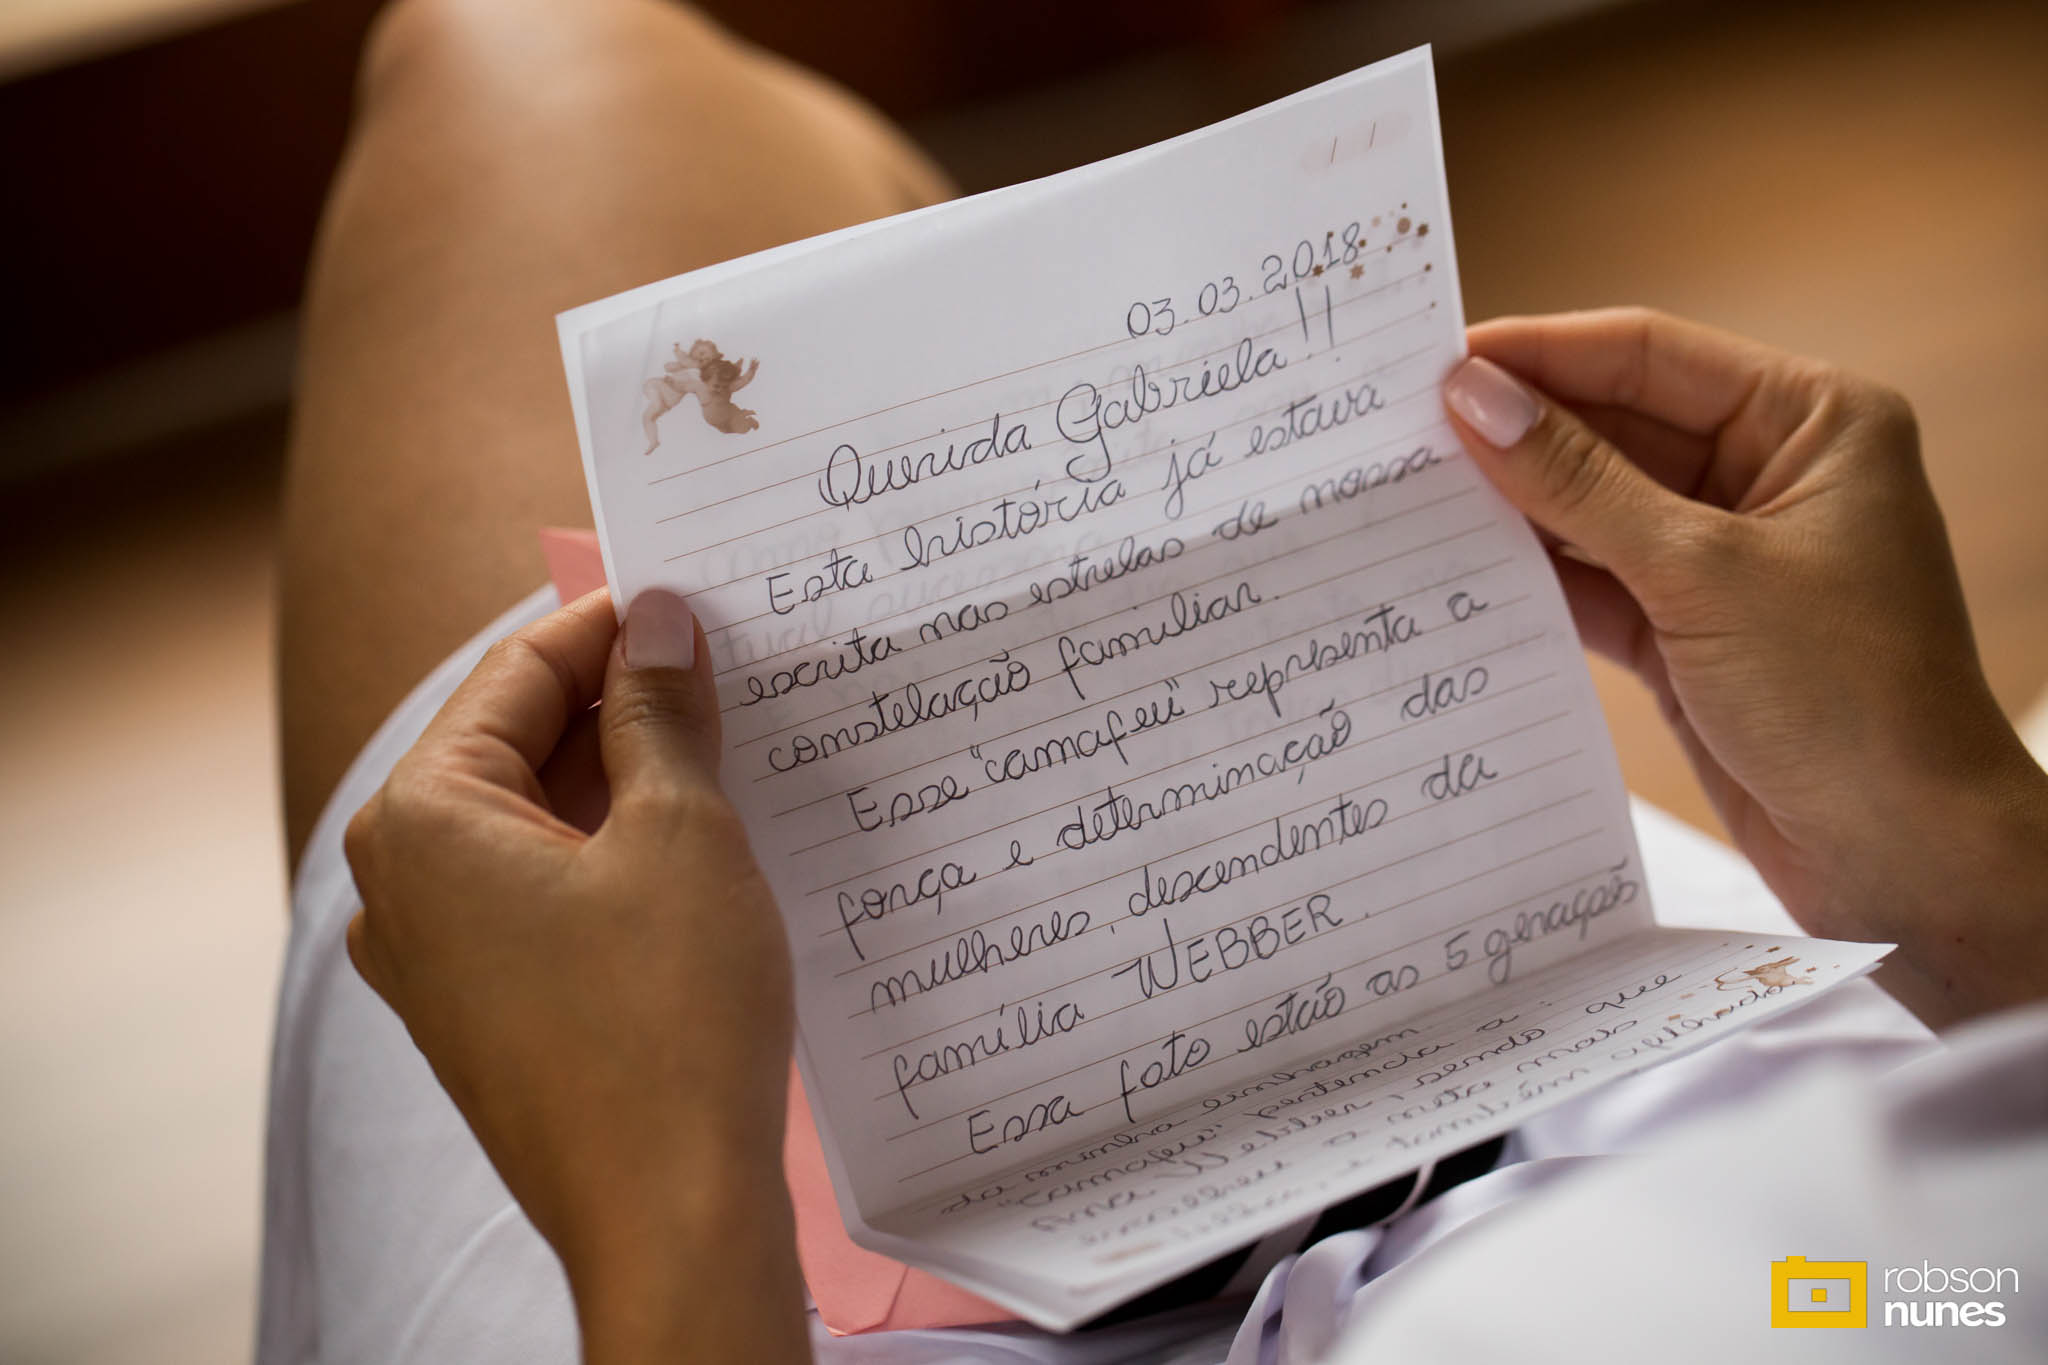 / /
03.03.2018
Querida Gabriela!!
Esta história já estava
escrita nas estrelas de nossa
constelação familiar.
Esse "camafeu" representa a
força e determinação das
mulheres, descendentes da
família WEBBER.
Essa foto estão as 5 gerações
da minha linhagem
"Camafeu", pertencia a:
Ana Webber, sendo que
a neta mais
e também afilhada
robson
nunes